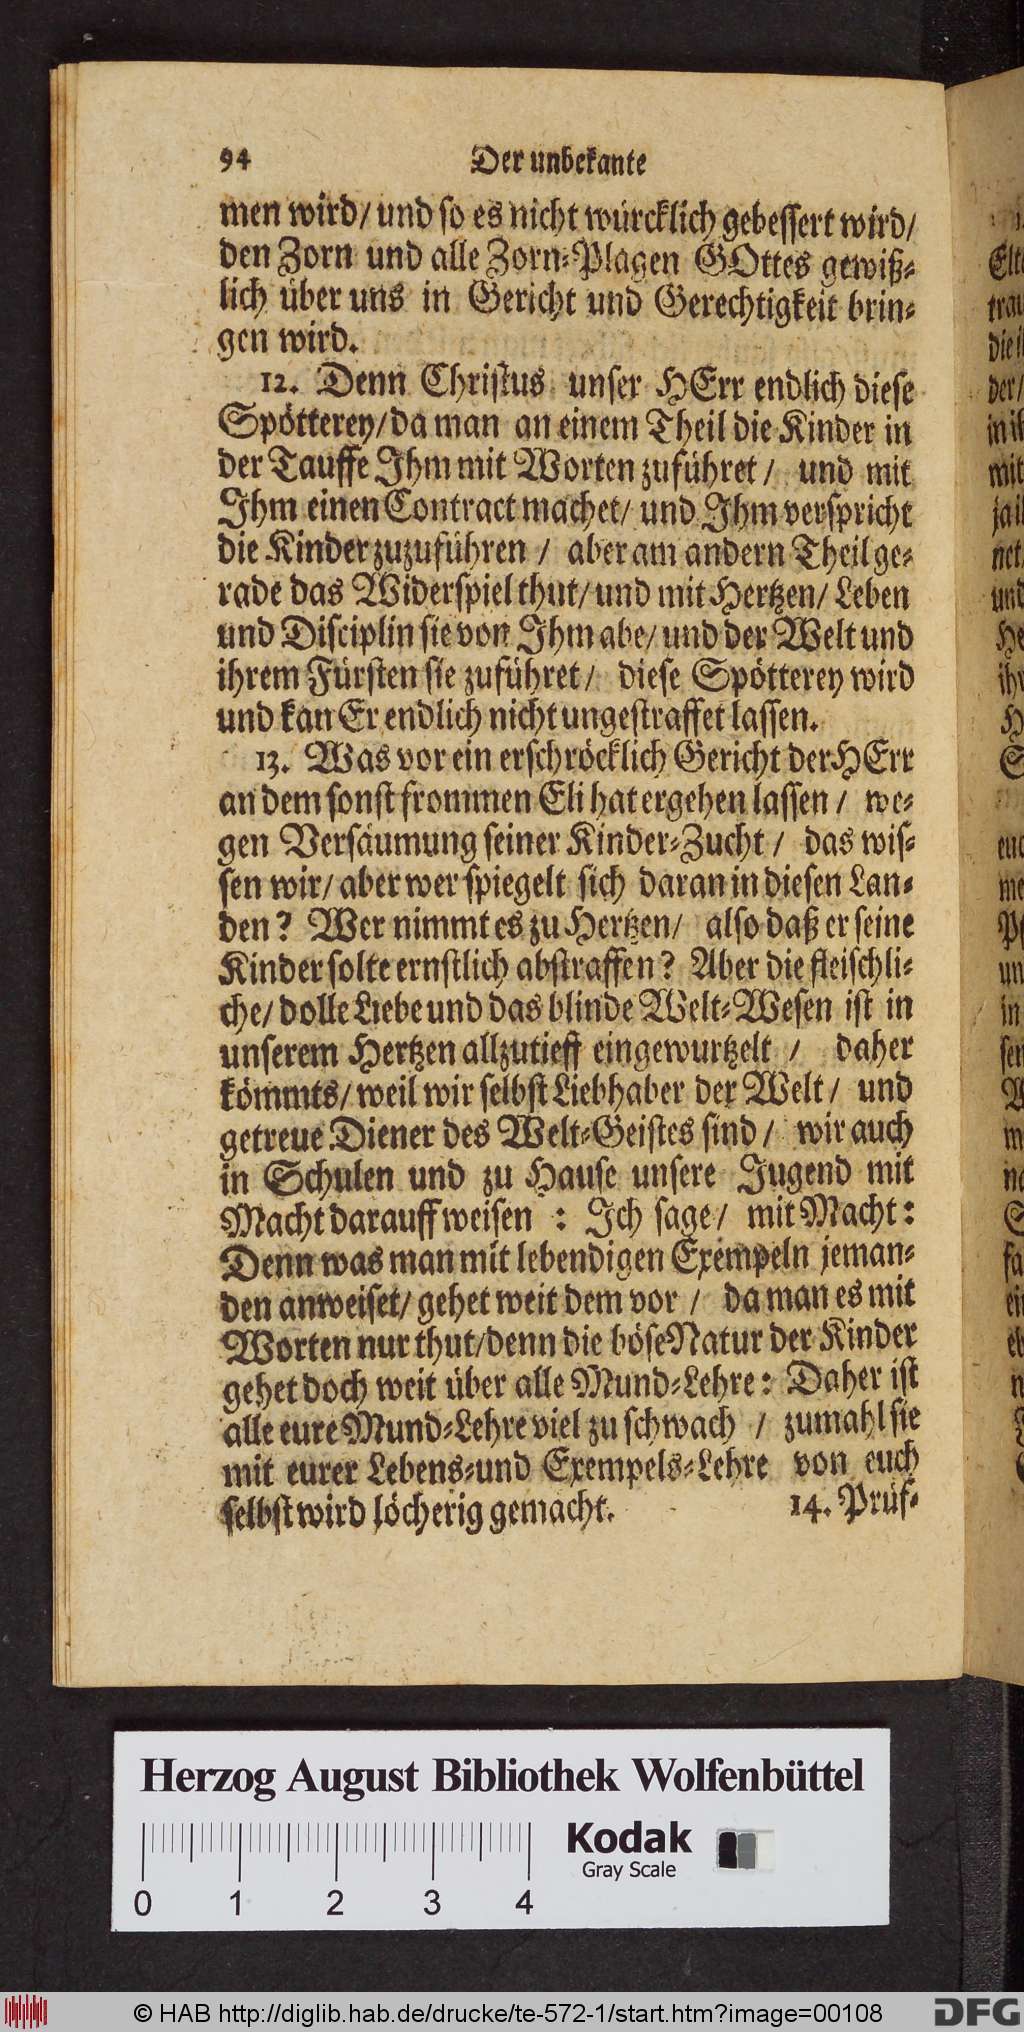 94 Der unbekante
men wird/ und so es nicht würcklich gebessert wird/
den Zorn und alle Zorn-Plagen GOttes gewiß-
lich über uns in Gericht und Gerechtigkeit brin-
gen wird.
12. Denn Christus unser HErr endlich diese
Spötterey/ da man an einem Theil die Kinder in
der Tauffe Ihm mit Worten zuführet/ und mit
Ihm einen Contract machet/ und Ihm verspricht
die Kinder zuzuführen / aber am andern Theil ge-
rade das Widerspiel thut/ und mit Hertzen/ Leben
und Disciplin sie von Ihm abe/ und der Welt und
ihrem Fürsten sie zuführet/ diese Spötterey wird
und kan Er endlich nicht ungestraffet lassen.
13. Was vor ein erschröcklich Gericht der HErr
an dem sonst frommen Eli hat ergehen lassen / we-
gen Versäumung seiner Kinder-Zucht / das wis-
sen wir/ aber wer spiegelt sich daran in diesen Lan-
den? Wer nimmt es zu Hertzen/ also daß er seine
Kinder solte ernstlich abstraffen? Aber die fleischli-
che/ dolle Liebe und das blinde Welt-Wesen ist in
unserem Hertzen allzutieff eingewurtzelt / daher
kömmts/ weil wir selbst Liebhaber der Welt/ und
getreue Diener des Welt-Geistes sind/ wir auch
in Schulen und zu Hause unsere Jugend mit
Macht darauff weisen : Ich sage/ mit Macht:
Denn was man mit lebendigen Exempeln jeman-
den anweiset/ gehet weit dem vor / da man es mit
Worten nur thut/ denn die böse Natur der Kinder
gehet doch weit über alle Mund-Lehre: Daher ist
alle eure Mund-Lehre viel zu schwach / zumahl sie
mit eurer Lebens-und Exempels-Lehre von euch
selbst wird löcherig gemacht. 14. Prüf-
Herzog August Bibliothek Wolfenbüttel
Kodak
Gray Scale
0 1 2 3 4
© HAB http://diglib.hab.de/drucke/te-572-1/start.htm?image=00108
DFG